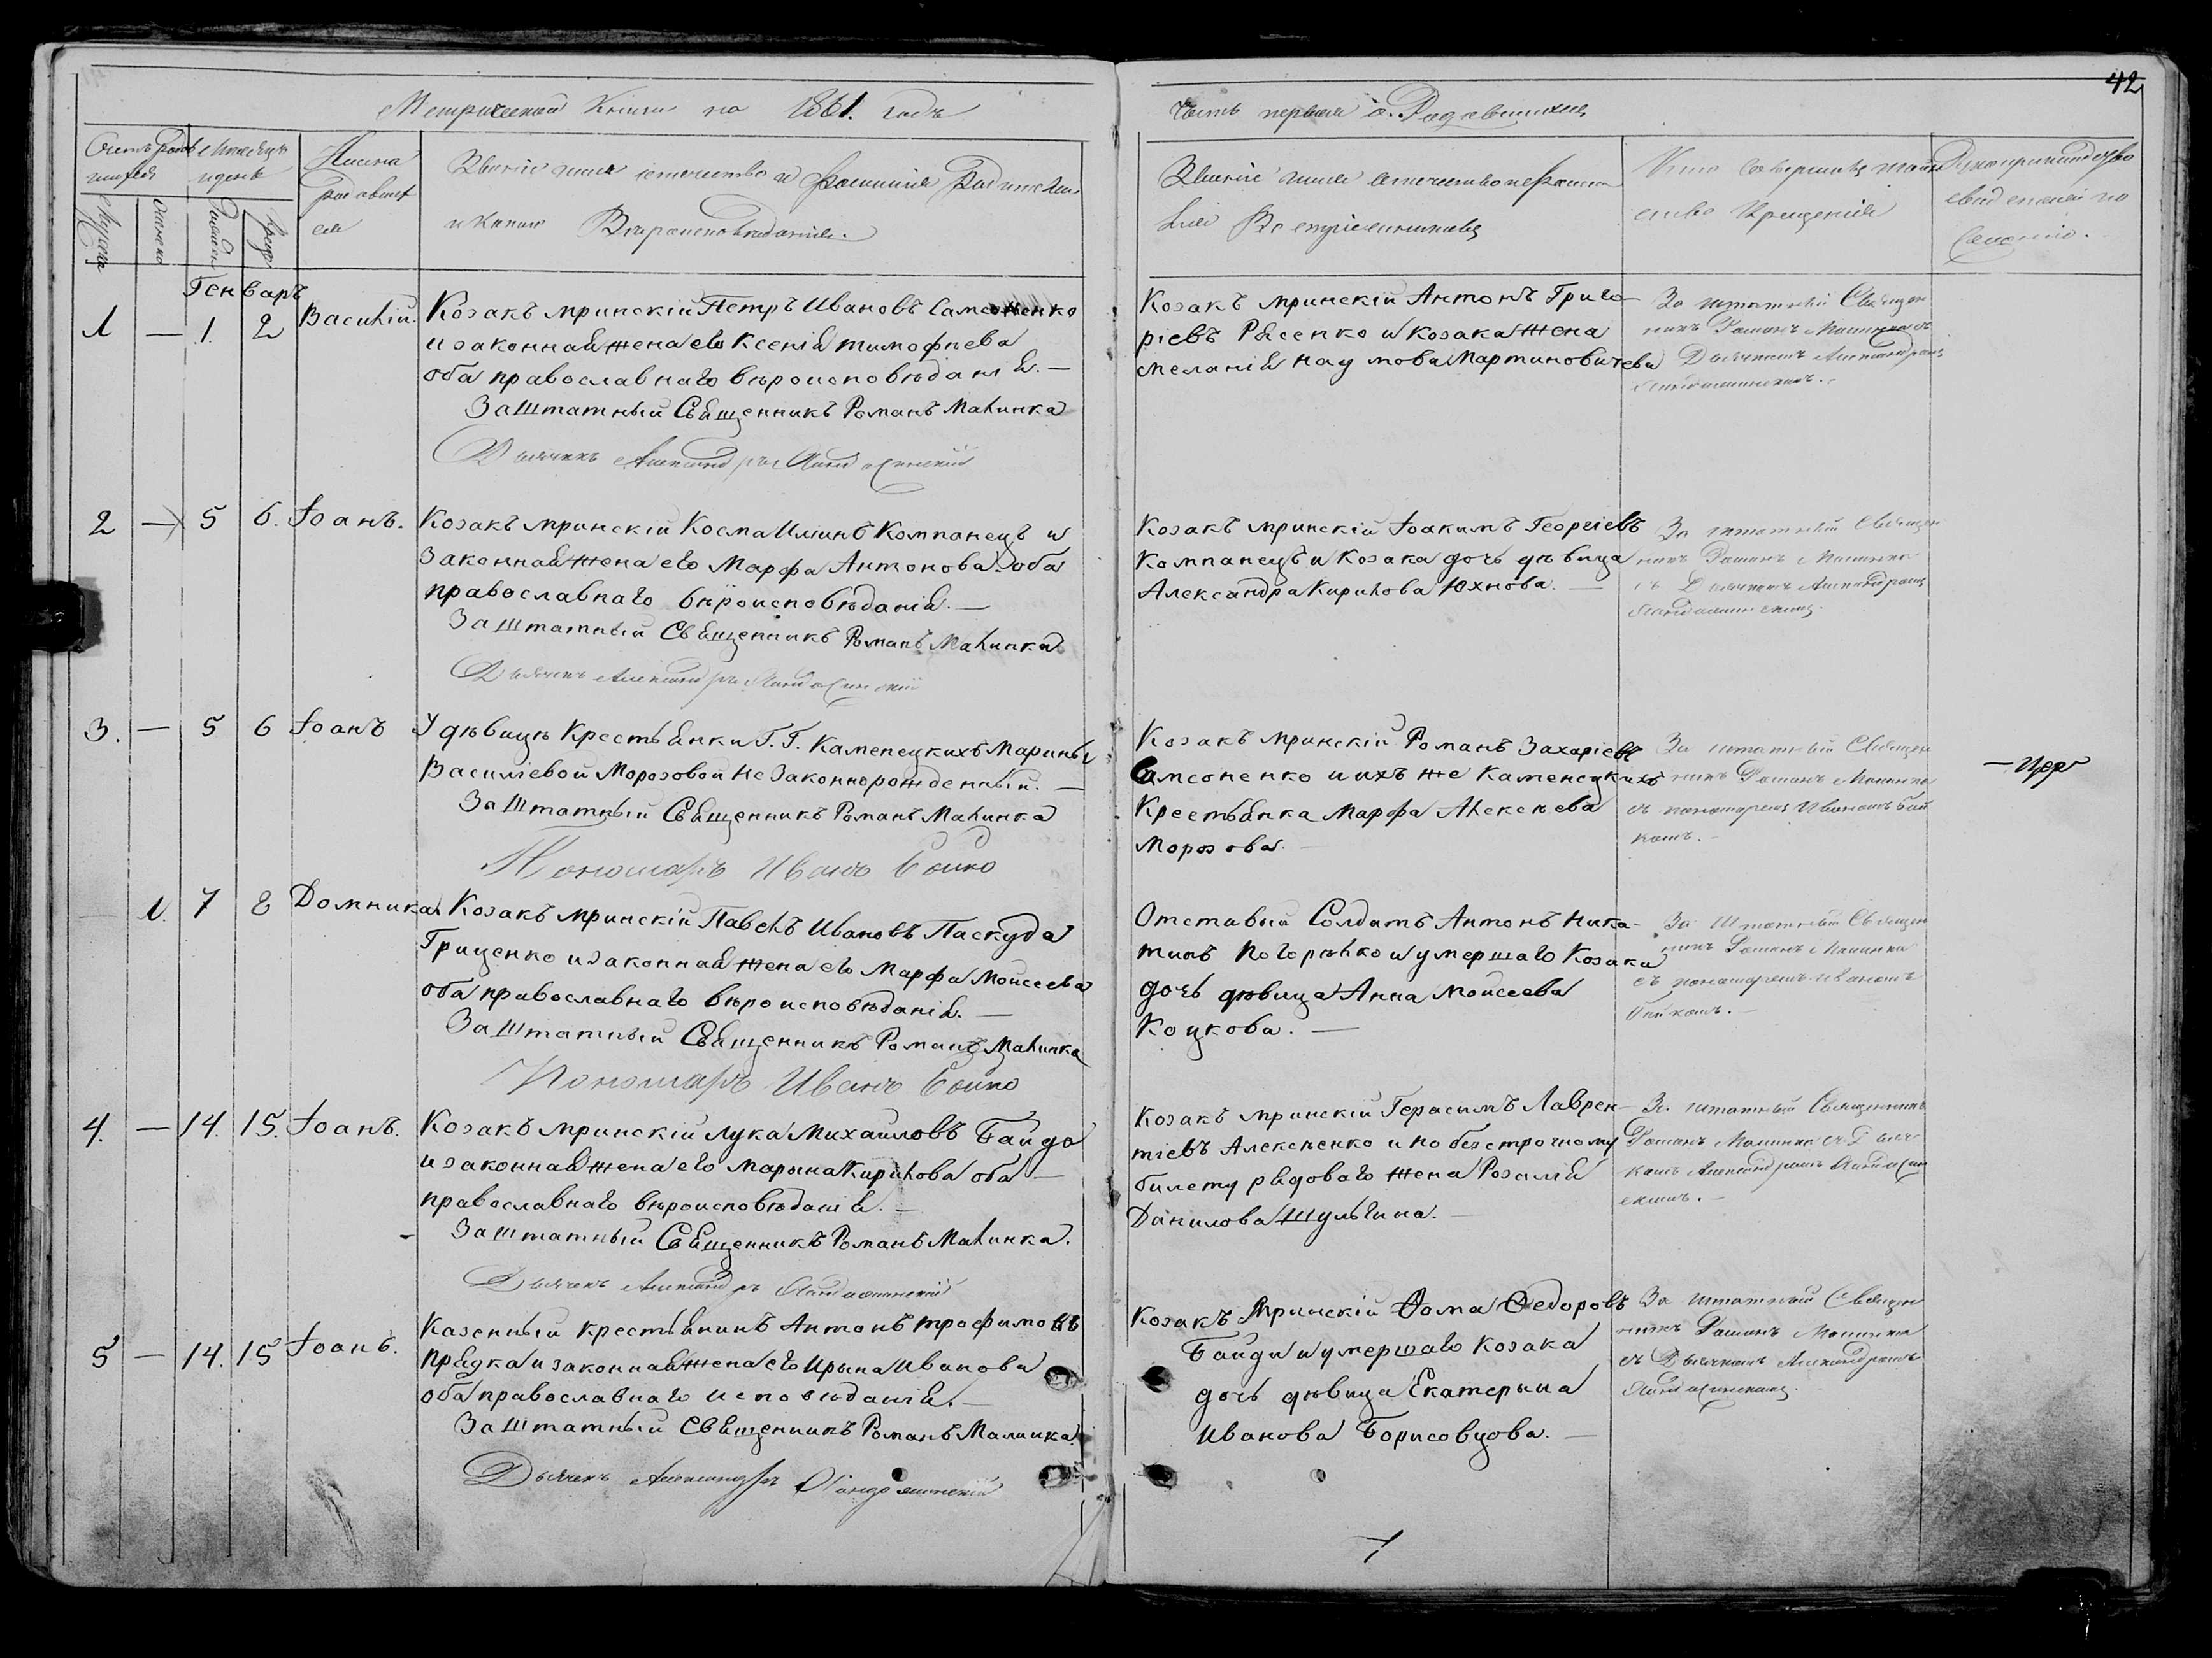 42
Метрической Книги на 1861. годъ
Часть первая о. Родившихся
Счетъ родившихся
Мѣсяцъ и день
Имена родившихся
Званіе имя отчество и фамилія Родителей
и какого Вѣроисповѣданія.
Званіе имя отчество и фамилія
Воспріемниковъ
Кто совершалъ таинство Крещенія
Рукоприкладство свидѣтелей по желанію.
Генваръ
1 — 1. 2 Василій.
Козакъ мринскій Петръ Ивановъ Самсоненко
и законная жена его Ксенія тимофпева
оба православнаго вѣроисповѣданія. —
Заштатный Священникъ Романъ Малинка
Дьячекъ Александръ
Козакъ мринскій Антонъ Григо-
ріевъ Рясенко и козака жена
меланія наумова Мартиновичева
За штатный Священ
никъ Романъ Малинка съ
Дьячкомъ Александромъ
2 — 5 6. Іоанъ.
Козакъ мринскій Косма Илиинъ Компанецъ и
Законная жена его Марфа Антонова оба
православнаго вѣроисповѣданія. —
Заштатный Священникъ Романъ Малинка
Дьячекъ Александръ
Козакъ мринскій Іоакимъ Георгіевъ
Компанецъ и Козака дочь дѣвица
Александра Кирилова Юхнова. —
За штатный Священ
никъ Романъ Малинка
съ Дьячкомъ Александромъ
3. — 5 6 Іоанъ
У дѣвицы Крестьянки Г. Г. Каменецкихъ Марины
Василіевой Морозовой незаконнорожденный. —
Заштатный Священникъ Романъ Малинка
Пономарь Иванъ Бойко
Козакъ мринскій Романъ Захаріевъ
Самсоненко и ихъ же Каменецкихъ
Крестьянка Марфа Алексѣева
Морозова. —
За штатный Священ
никъ Романъ Малинка
съ пономаремъ Иваномъ Бой
комъ. —
1. 7 8 Домникая
Козакъ мринскій Павелъ Ивановъ Паскуда
Гриценко и законная жена его Марфа Мойсеева
оба православнаго вѣроисповѣданія. —
Заштатный Священникъ Романъ Малинка
Пономарь Иванъ Бойко
Отставый Солдатъ Антонъ Ника-
тинъ Погорѣлко и умершаго Козака
дочь дѣвица Анна Мойсеева
Коцкова. —
За Штатный Священ
никъ Романъ Малинка
съ пономаремъ Иваномъ
Бойкомъ. —
4. — 14. 15. Іоанъ.
Козакъ мринскій Лука Михайловъ Байдо
и законная жена его Марына Кирилова оба —
православнаго вѣроисповѣданія. —
Заштатный Священникъ Романъ Малинка.
Дьячекъ Александръ
Козакъ мринскій Герасимъ Лаврен-
тіевъ Алексеенко и по безстрочному
билету рядоваго жена Розалія
Данилова Шульгина. —
За штатный Священникъ
Романъ Малинка съ Дьяч
комъ Александромъ
5 — 14. 15 Іоанъ.
Казенный крестьянинъ Антонъ трофимовъ
Прядка и законная жена его Ирына Иванова
оба православнаго исповѣданія. —
Заштатный Священникъ Романъ Малинка.
Дьячекъ Александръ
Козакъ Мринскій Ѳома Ѳедоровъ
Байди и умершаго козака
дочь дѣвица Екатерына
Иванова Борисовцова. —
За штатный Священ
никъ Романъ Малинка
съ Дьячкомъ Александромъ